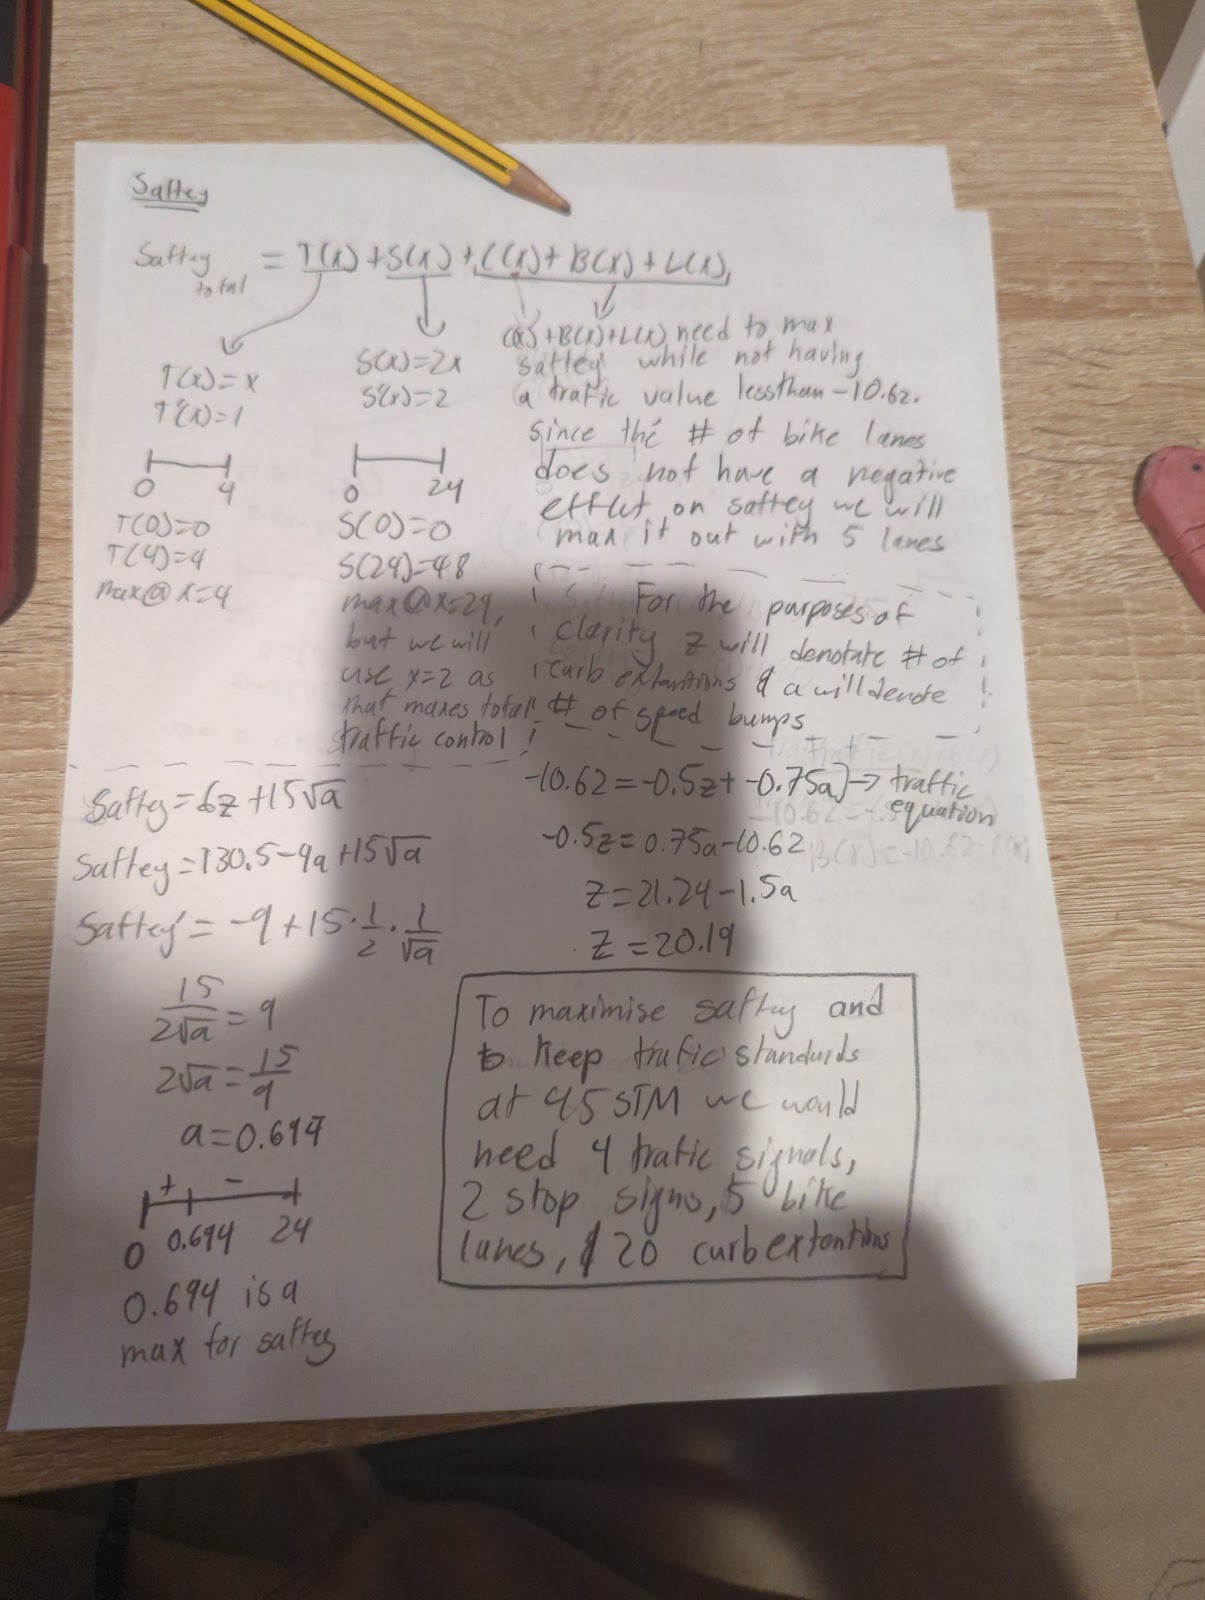 Saftey
Saftey total = T(x) + S(x) + C(x) + B(x) + L(x)
T(x)=x
T'(x)=1
0 4
T(0)=0
T(4)=4
max@ x=4
S(x)=2x
S'(x)=2
0 24
S(0)=0
S(24)=48
max@x=24,
but we will
use x=2 as
that maxes total
traffic control
C(x)+B(x)+L(x) need to max
saftey while not having
a trafic value less than -10.62.
since the # of bike lanes
does not have a negative
effect on saftey we will
max it out with 5 lanes
For the purposes of
clarity z will denotate # of
curb extantions & a will denote
# of speed bumps
Saftey=6z+15√a
Saftey=130.5-9a+15√a
Saftey'=-9+15·1/2·1/√a
15/2√a=9
2√a=15/9
a=0.694
+ -
0 0.694 24
0.694 is a
max for saftey
-10.62=-0.5z+-0.75a]→traffic
equation
-0.5z=0.75a-10.62
z=21.24-1.5a
z=20.19
To maximise saftey and
to keep trafic standards
at 45 STM we would
need 4 trafic signals,
2 stop signs, 5 bike
lanes, & 20 curb extantions